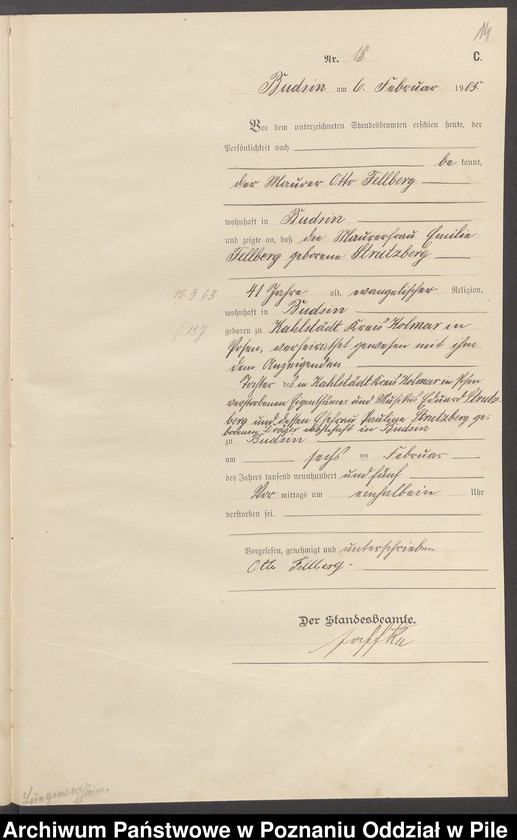 Nr. 18 C.
Budsin am 6. Februar 1905.
Vor dem unterzeichneten Standesbeamten erschien heute, der
Persönlichkeit nach
be kannt,
der Maurer Otto Fellberg
wohnhaft in Budsin
und zeigte an, daß die Maurerfrau Emilie
Fellberg geborene Strutzberg
15.9.63
41 Jahre alt, evangelischer Religion,
wohnhaft in Budsin
geboren zu Kahlstädt Kreis Kolmar in
Posen, verheirathet gewesen mit ihm
dem Anzeigenden
Tochter des in Kahlstädt Kreis Kolmar in Posen
verstorbenen Eigenthümer und Musikus Eduard Strutz-
berg und dessen Ehefrau Pauline Strutzberg ge-
borenen Dräger wohnhaft in Budsin
zu Budsin
am sechs ten Februar
des Jahres tausend neunhundert und fünf
Vor mittags um einhalbein Uhr
verstorben sei.
Vorgelesen, genehmigt und unterschrieben
Otto Fellberg.
Der Standesbeamte.
Archiwum Państwowe w Poznaniu Oddział w Pile